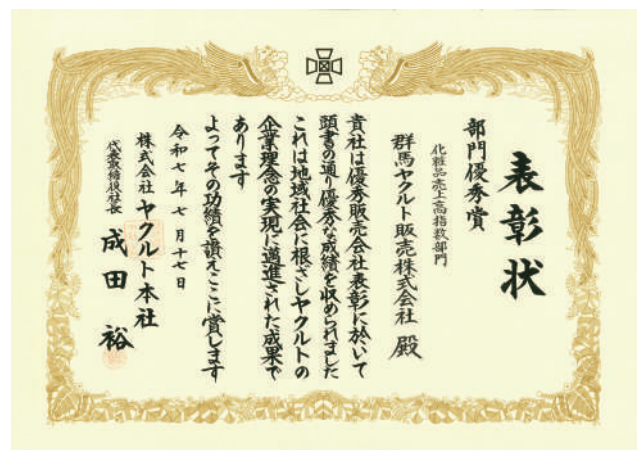 表彰状
部門優秀賞
化粧品売上高指数部門
群馬ヤクルト販売株式会社 殿
貴社は優秀販売会社表彰に於いて
頭書の通り優秀な成績を収められました
これは地域社会に根ざしヤクルトの
企業理念の実現に邁進された成果で
あります
よってその功績を讃えここに賞します
令和七年七月十七日
株式会社ヤクルト本社
代表取締役社長 成田 裕